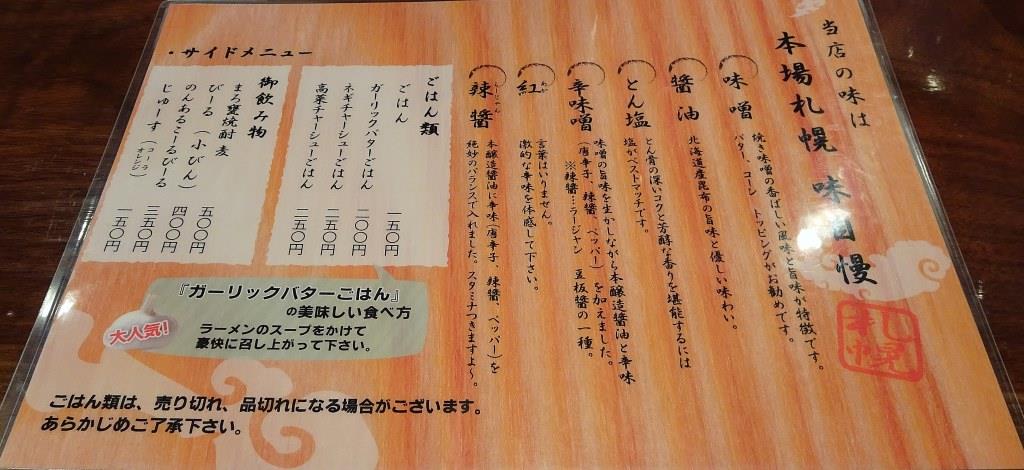 当店の味は
本場札幌 味自慢
札幌
味噌
焼き味噌の香ばしい風味と旨味が特徴です。
バター、コーン トッピングがお勧めです。
醤油
北海道産昆布の旨味と優しい味わい。
とん塩
とん骨の深いコクと芳醇な香りを堪能するには
塩がベストマッチです。
辛味噌
味噌の旨味を生かしながら本醸造醤油と辛味
(唐辛子、辣醤、ペッパー)を加えました。
※辣醤…ラージャン 豆板醤の一種。
紅
言葉はいりません。
激的な辛味を体感して下さい。
辣醤
らーじゃん
本醸造醤油に辛味(唐辛子、辣醤、ペッパー)を
絶妙のバランスで入れました。スタミナつきますよ～。
・サイドメニュー
ごはん類
ごはん 一五〇円
ガーリックバターごはん 二〇〇円
ネギチャーシューごはん 二五〇円
高菜チャーシューごはん 二五〇円
御飲み物
まろ甕焼酎 麦 五〇〇円
びーる (小びん) 四〇〇円
のんあるこーるびーる 三五〇円
じゅーす (コーラ オレンジ) 一五〇円
『ガーリックバターごはん』
の美味しい食べ方
大人気!
ラーメンのスープをかけて
豪快に召し上がって下さい。
ごはん類は、売り切れ、品切れになる場合がございます。
あらかじめご了承下さい。